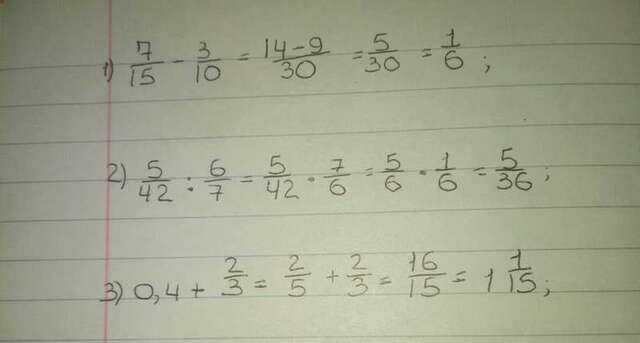 1) 7/15 - 3/10 = 14-9/30 = 5/30 = 1/6 ;
2) 5/42 : 6/7 = 5/42 · 7/6 = 5/6 · 1/6 = 5/36 ;
3) 0,4 + 2/3 = 2/5 + 2/3 = 16/15 = 1 1/15 ;